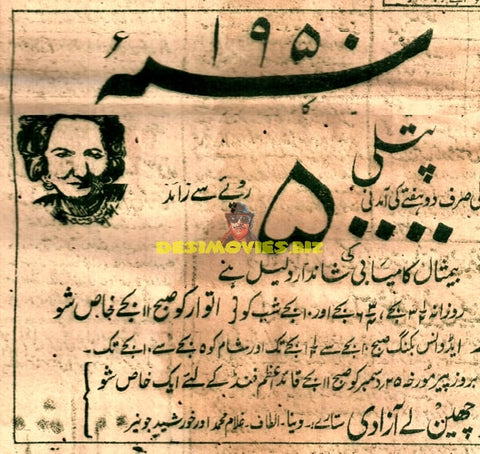 ۱۹۵۰ء
کا
پتلی
کی صرف دو ہفتے کی آمدنی
۵۰۰۰۰ روپے سے زائد
DESIMOVIES.BIZ
بیمثال کامیابی کی شاندار دلیل ہے
روزانہ ۳½ بجے، ۶¾ بجے اور ۱۰ بجے شب کو { اتوار کو صبح ۱۱ بجے خاص شو
ایڈوانس بکنگ صبح ۱۱ بجے سے ۱½ بجے تک اور شام کو ۵ بجے سے ۱۰ بجے تک۔
بروز پیر مورخہ ۲۵ دسمبر کو صبح ۱۱ بجے قائد اعظم فنڈ کے لئے ایک خاص شو
چھین لے آزادی ستارے:۔ وینا۔ الطاف۔ غلام محمد اور خورشید جونیر